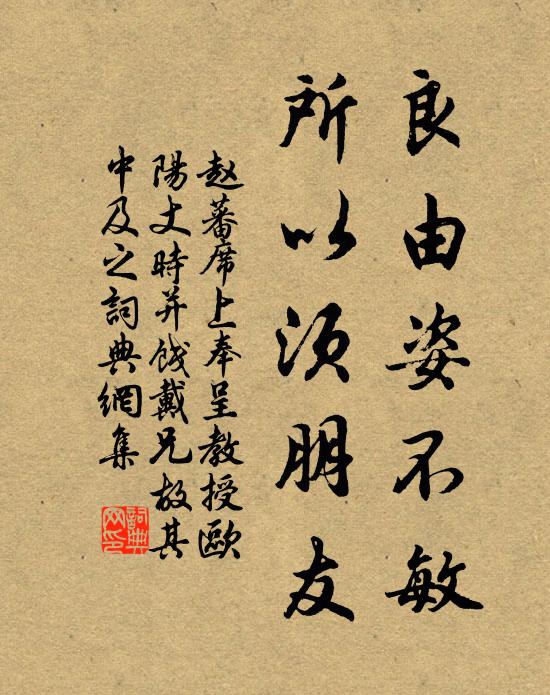 良由姿不敏
所以须朋友
赵蕃席上奉呈教授歐
陽丈時并餞戴兄故其
中及之詞典網集
詞典
网印